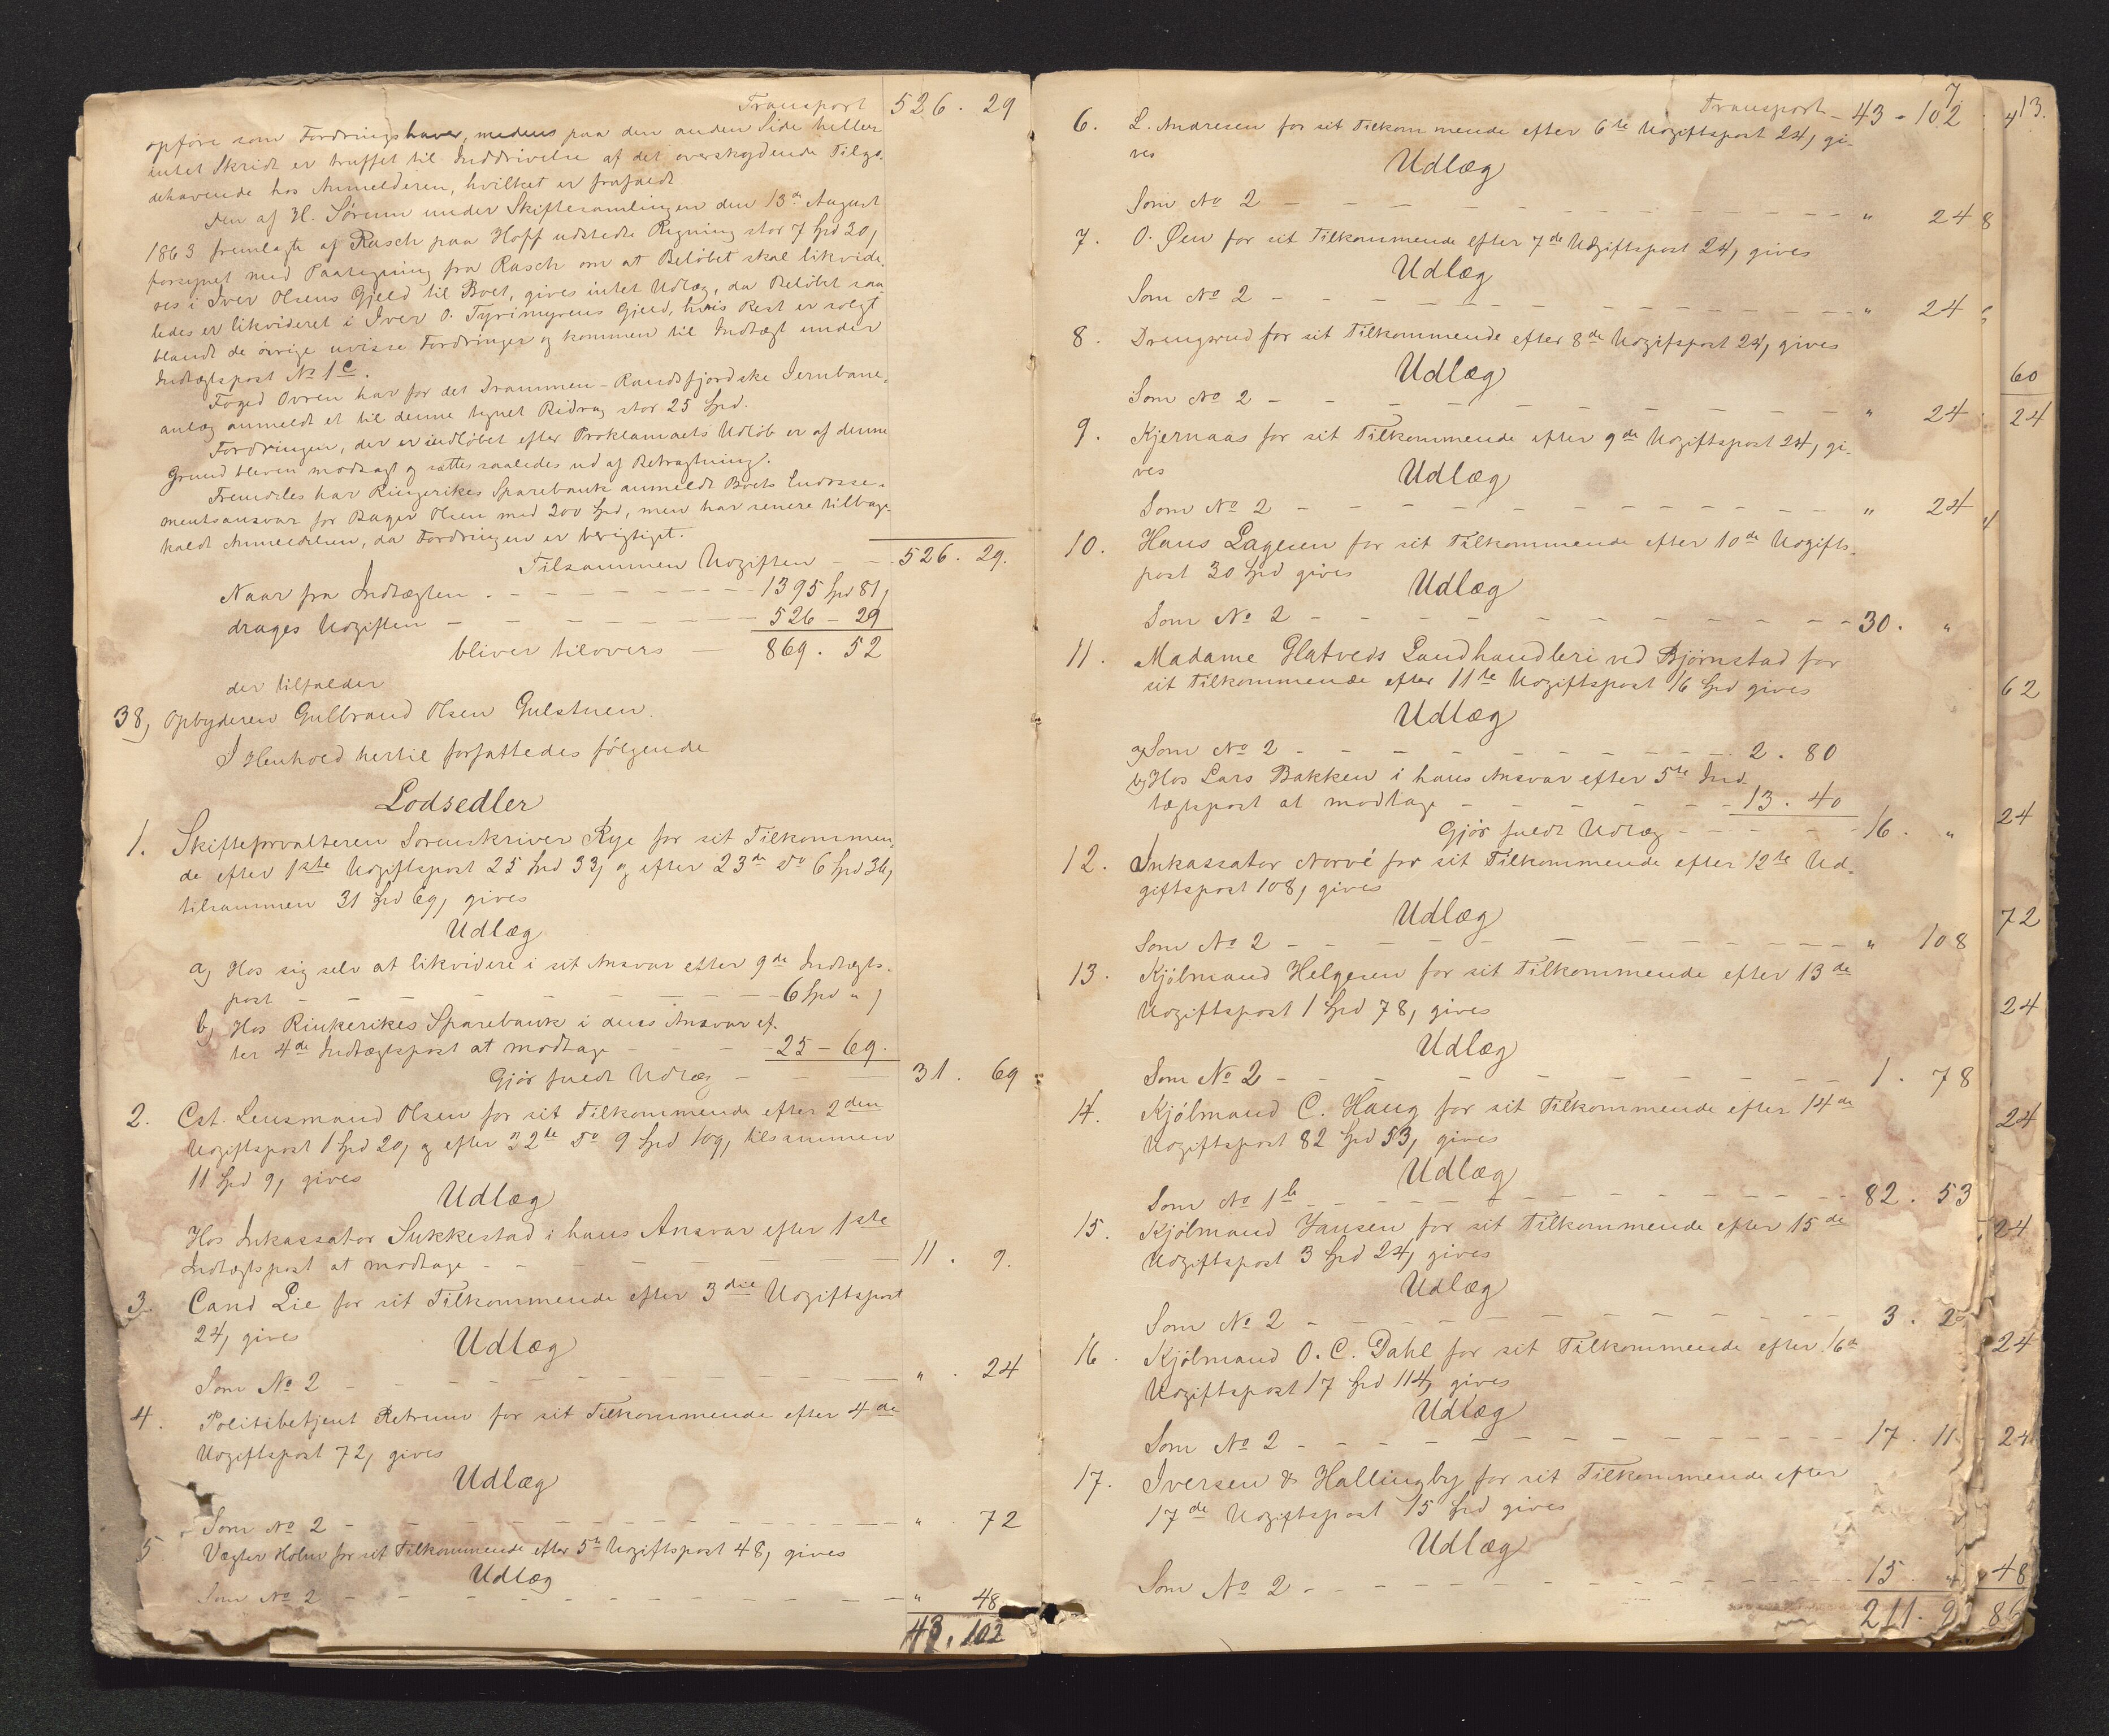 Transport 526. 29
opføre som Fordringshaver, medens paa den anden Side heller
intet Skridt er truffet til Inddrivelse af det overskydende Tilgo-
dehavende hos Anmelderen, hvilket er frafaldt
Den af H. Sørum under Skiftesamlingen den 13de August
1863 fremlagte af Rasch paa Hoff udstedte Regning stor 7 Spd 20,
forsynet med Paategning fra Rasch om at Beløbet skal likvide-
res i Iver Olsens Gjeld til Boet, gives intet Udlæg, da Beløbet saa-
ledes er likvideret i Iver O. Tyrimyrens Gjeld, hvis Rest er solgt
blandt de øvrige uvisse Fordringer og kommen til Indtægt under
Indtægtspost No 1c.
Foged Ovren har for det Drammen-Randsfjordske Jernbane-
anlæg anmeldt et til denne tegnet Bidrag stor 25 Spd.
Fordringen, der er indløbet efter Proklamaets Udløb er af denne
Grund bleven modsagt og sættes saaledes ud af Betragtning.
Fremdeles har Ringerikes Sparebank anmeldt Boets Endosse-
mentsansvar for Bager Olsen med 200 Spd, men har senere tilbage-
kaldt Anmeldelsen, da Fordringen er berigtiget.
Tilsammen Udgiften - - 526. 29.
Naar fra Indtægten - - - 1395 Spd 81,
drages Udgiften - - - 526 - 29
bliver tilovers - 869. 52
der tilfalder
38, Opbyderen Gulbrand Olsen Gulstuen.
I Henhold hertil forfattedes følgende
Lodsedler
1. Skifteforvalteren Sorenskriver Rye for sit Tilkommen-
de efter 1ste Udgiftspost 25 Spd 33, og efter 23de Do 6 Spd 36,
tilsammen 31 Spd 69, gives
Udlæg
a, Hos sig selv at likvidere i sit Ansvar efter 9de Indtægts-
post - - - 6 Spd " ,
b, Hos Rinkerikes Sparebank i dens Ansvar ef-
ter 4de Indtægtspost at modtage - - 25 - 69.
Gjør fuldt Udlæg - - - 31. 69
2. Cst. Lensmand Olsen for sit Tilkommende efter 2den
Udgiftspost 1 Spd 20, og efter 32te Do 9 Spd 109, tilsammen
11 Spd 9, gives
Udlæg
Hos Inkassator Sukkestad i hans Ansvar efter 1ste
Indtægtspost at modtage - - - 11. 9.
3. Cand Lie for sit Tilkommende efter 3die Udgiftspost
24, gives
Udlæg
Som No 2 - - - " . 24
4. Politibetjent Retrum for sit Tilkommende efter 4de
Udgiftspost 72, gives
Udlæg
Som No 2 - - - " . 72
5 Vægter Holm for sit Tilkommende efter 5te Udgiftspost 48, gives
Udlæg
Som No 2 - - - " 48
43. 102
7
Transport - 43 - 102
6. L. Andresen for sit Tilkommende efter 6te Udgiftspost 24, gi-
ves
Udlæg
Som No 2 - - - " 24
7. O. Øen for sit Tilkommende efter 7de Udgiftspost 24, gives
Udlæg
Som No 2 - - - " 24
8. Drengsrud for sit Tilkommende efter 8de Udgiftspost 24, gives
Udlæg
Som No 2 - - - " 24
9. Kjernaas for sit Tilkommende efter 9de Udgiftspost 24, gi-
ves
Udlæg
Som No 2 - - - " 24
10. Hans Lagesen for sit Tilkommende efter 10de Udgifts-
post 30 Spd gives
Udlæg
Som No 2 - - - 30. "
11. Madame Glatveds Landhandleri ved Bjørnstad for
sit Tilkommende efter 11te Udgiftspost 16 Spd gives
Udlæg
a, Som No 2 - - - 2. 80
b, Hos Lars Bakken i hans Ansvar efter 5te Ind-
tægtspost at modtage - - - 13. 40
Gjør fuldt Udlæg - - - 16. "
12. Inkassator Norvé for sit Tilkommende efter 12te Ud-
giftspost 108, gives
Udlæg
Som No 2 - - - " 108
13. Kjøbmand Helgesen for sit Tilkommende efter 13de
Udgiftspost 1 Spd 78, gives
Udlæg
Som No 2 - - - 1. 78
14. Kjøbmand C. Haug for sit Tilkommende efter 14de
Udgiftspost 82 Spd 53, gives
Udlæg
Som No 1b - - - 82. 53
15. Kjøbmand Jansen for sit Tilkommende efter 15de
Udgiftspost 3 Spd 24, gives
Udlæg
Som No 2 - - - 3. 2
16. Kjøbmand O. C. Dahl for sit Tilkommende efter 16de
Udgiftspost 17 Spd 114, gives
Udlæg
Som No 2 - - - 17. 11
17. Iversen & Hallingby for sit Tilkommende efter
17de Udgiftspost 15 Spd gives
Udlæg
Som No 2 - - - 15. "
211. 9
13.
60
24
62
24
72
24
24
24
24
24
48